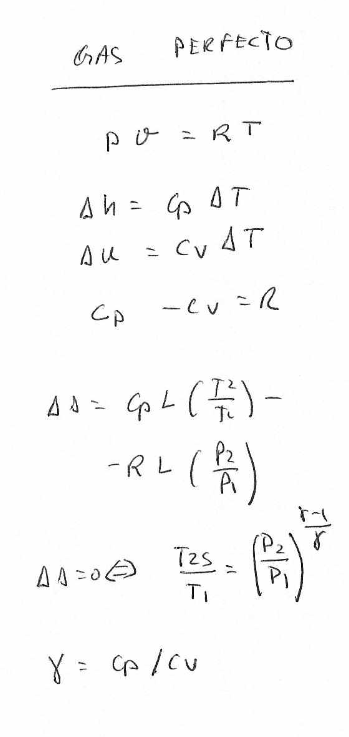 GAS PERFECTO
p v = R T
Δh = Cp ΔT
Δu = Cv ΔT
Cp - Cv = R
Δs = Cp L (T2/T1) -
- R L (P2/P1)
Δs = 0 ⇔ T2s/T1 = (P2/P1)^((γ-1)/γ)
γ = Cp / Cv